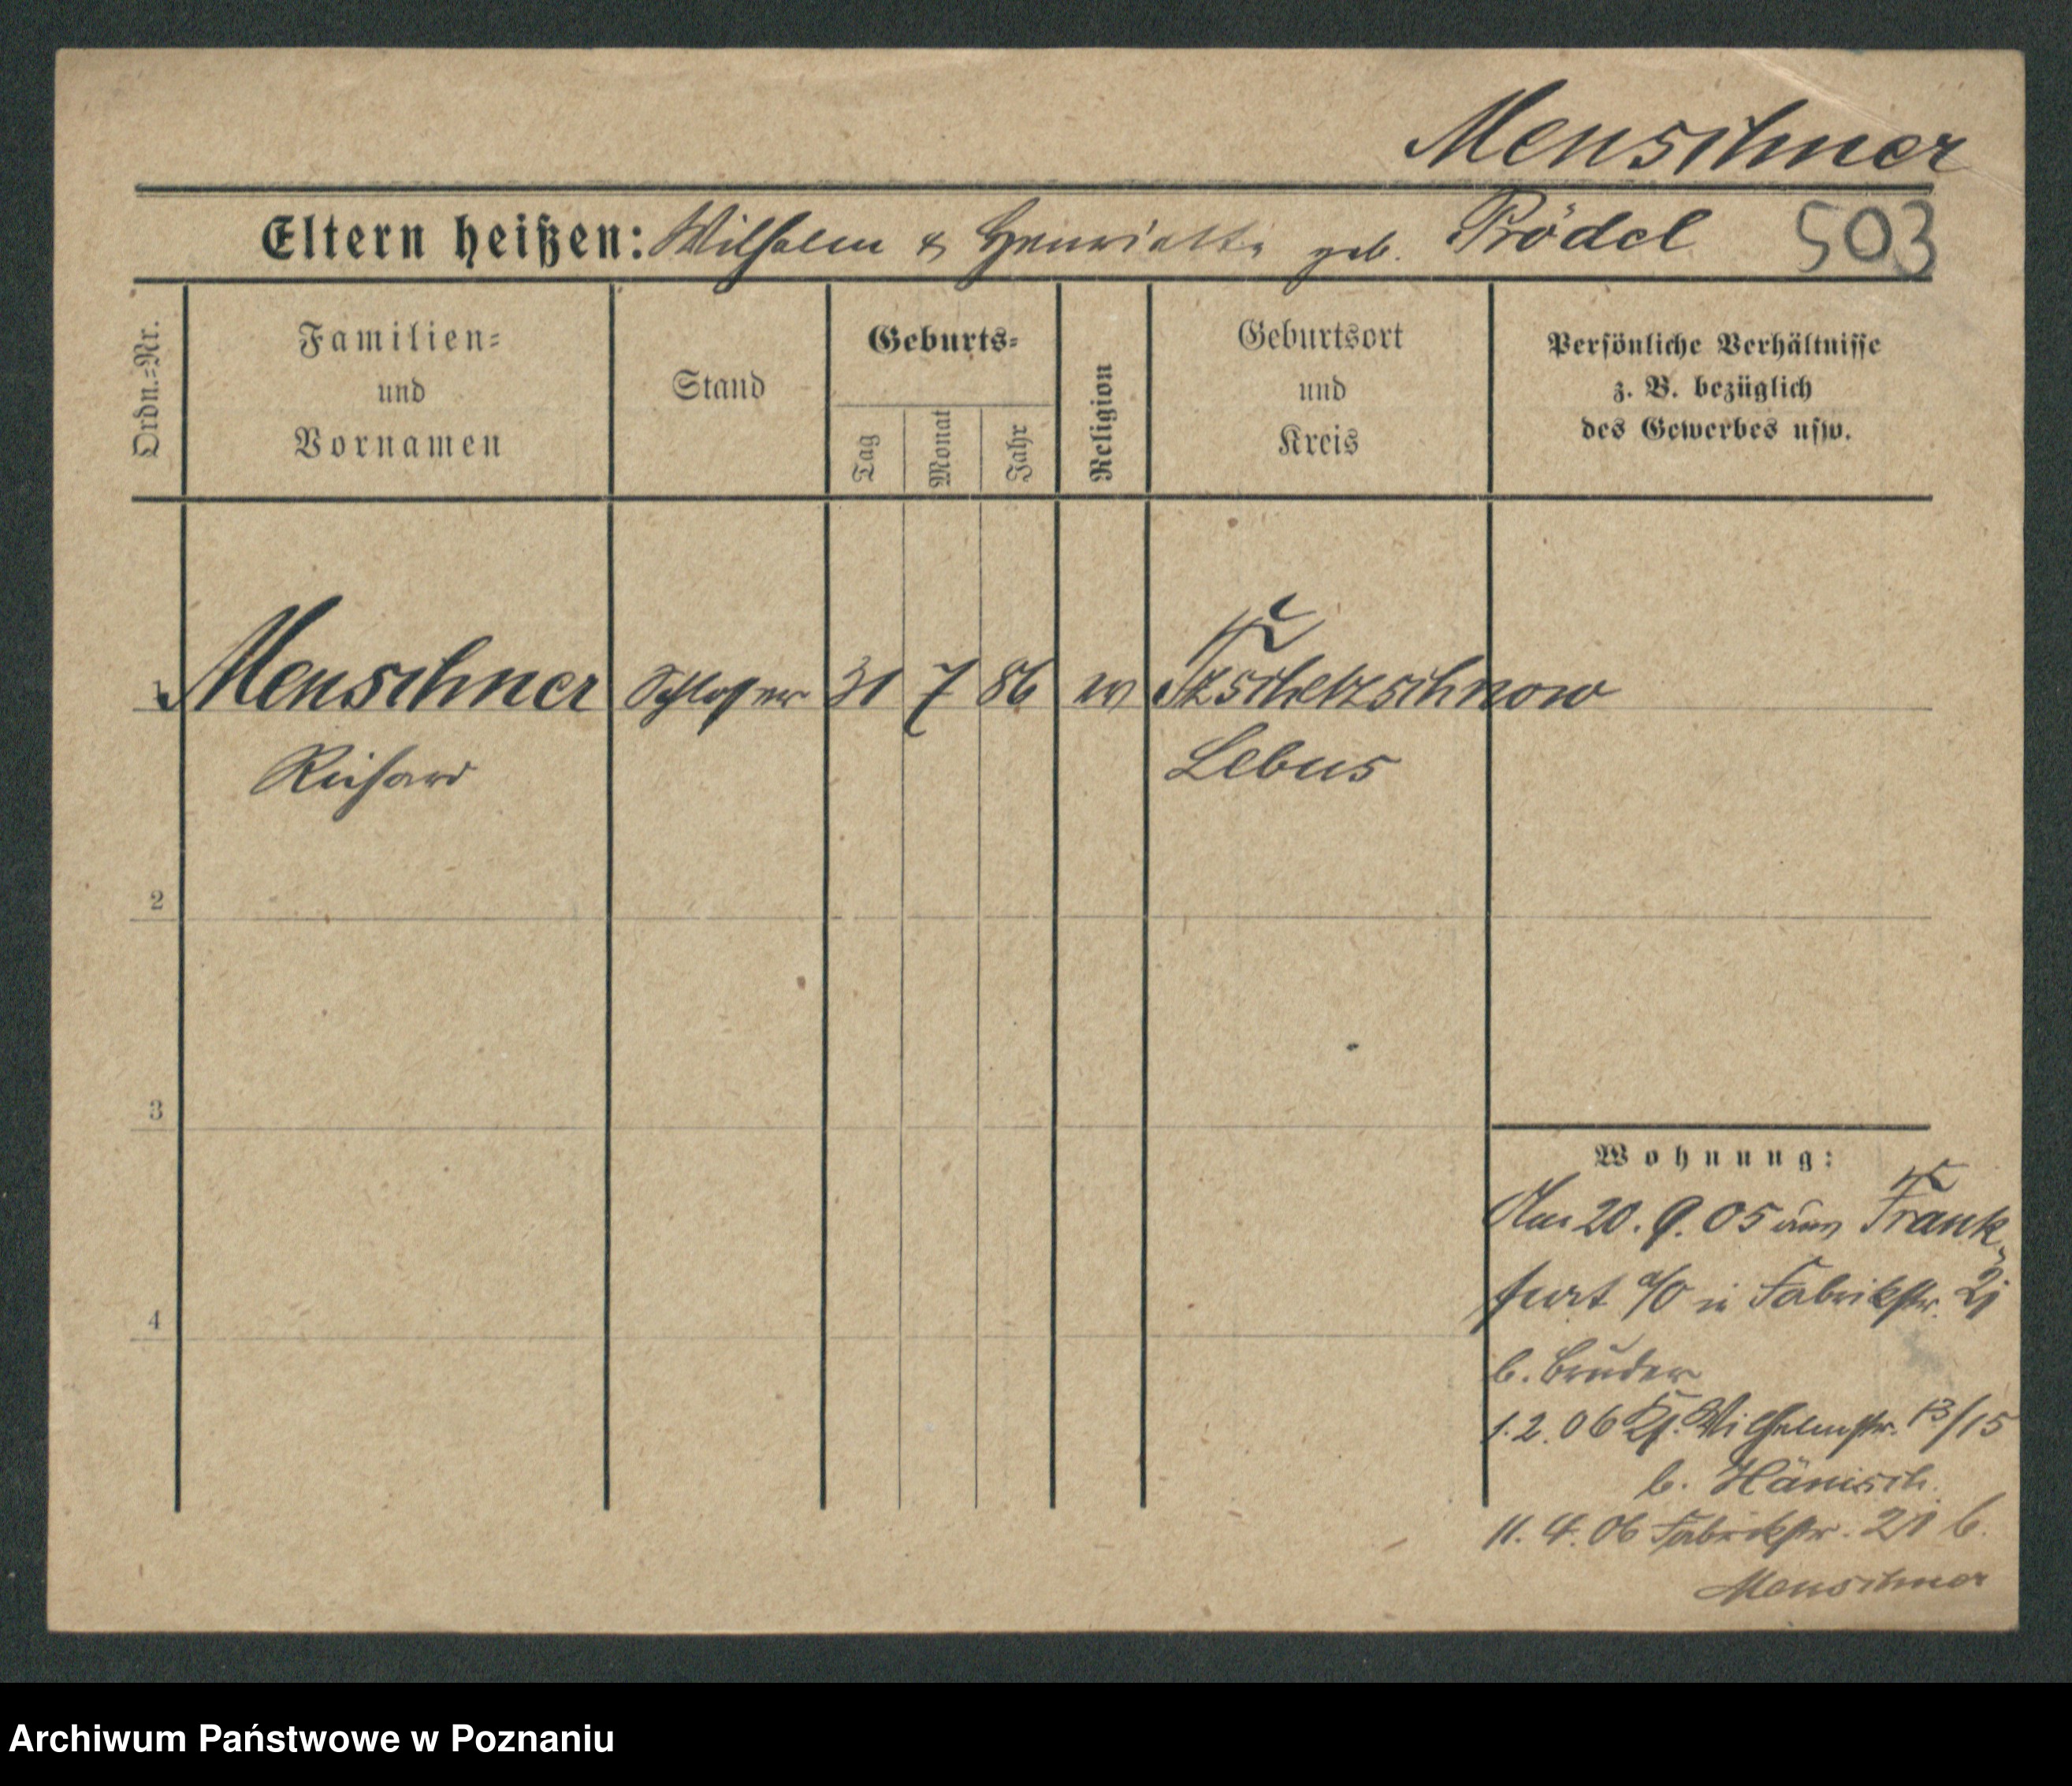 Menschner
Eltern heißen: Wilhelm & Henriette geb. Prödel 503
Ordn.-Nr.
Familien-
und
Vornamen
Stand
Geburts-
Tag
Monat
Jahr
Religion
Geburtsort
und
Kreis
Persönliche Verhältnisse
z. B. bezüglich
des Gewerbes usw.
1 Menschner Schlosser 31 7 86 Tzschetzschnow
Richard Lebus
2
3
4
Wohnung:
Am 20. 9. 05 aus Frank-
furt a/O in Fabrikstr. 21
b. Bruder
1. 2. 06 Kl. Wilhelmstr. 13/15
b. Hänisch.
11. 4. 06 Fabrikstr. 21 b.
Menschner
Archiwum Państwowe w Poznaniu